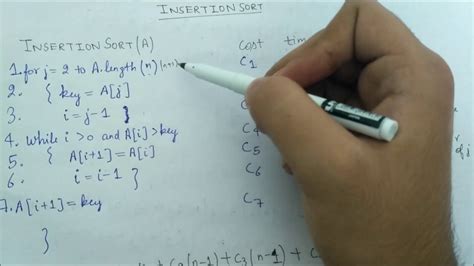 INSERTION SORT
INSERTION SORT (A) cost time
1. for j = 2 to A.length (n) (n+1) C1
2. { key = A[j]
3. i = j-1 }
4. while i > 0 and A[i] > key C4
5. { A[i+1] = A[i] C5
6. i = i-1 } C6
7. A[i+1] = key C7
}
C2(n-1) + C3(n-1) + C